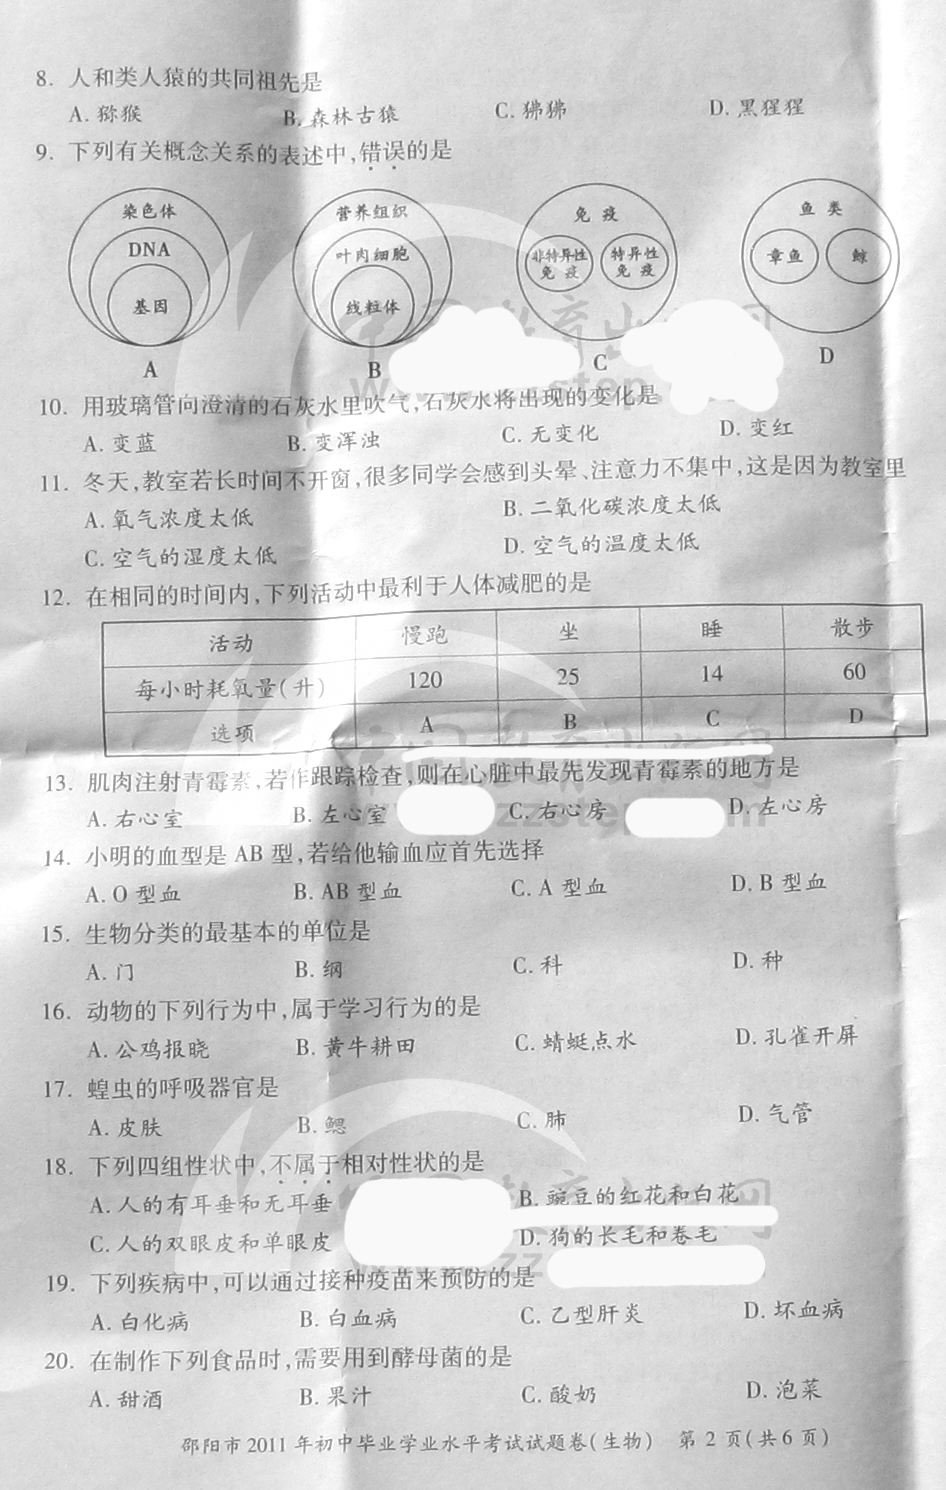 8. 人和类人猿的共同祖先是
A. 猕猴 B. 森林古猿 C. 狒狒 D. 黑猩猩
9. 下列有关概念关系的表述中,错误的是
染色体 营养组织 免疫 鱼类
DNA 叶肉细胞 非特异性免疫 特异性免疫 章鱼 鲸
基因 线粒体
A B C D
10. 用玻璃管向澄清的石灰水里吹气,石灰水将出现的变化是
A. 变蓝 B. 变浑浊 C. 无变化 D. 变红
11. 冬天,教室若长时间不开窗,很多同学会感到头晕、注意力不集中,这是因为教室里
A. 氧气浓度太低 B. 二氧化碳浓度太低
C. 空气的湿度太低 D. 空气的温度太低
12. 在相同的时间内,下列活动中最利于人体减肥的是
活动 慢跑 坐 睡 散步
每小时耗氧量(升) 120 25 14 60
选项 A B C D
13. 肌肉注射青霉素,若作跟踪检查,则在心脏中最先发现青霉素的地方是
A. 右心室 B. 左心室 C. 右心房 D. 左心房
14. 小明的血型是 AB 型,若给他输血应首先选择
A. O 型血 B. AB 型血 C. A 型血 D. B 型血
15. 生物分类的最基本的单位是
A. 门 B. 纲 C. 科 D. 种
16. 动物的下列行为中,属于学习行为的是
A. 公鸡报晓 B. 黄牛耕田 C. 蜻蜓点水 D. 孔雀开屏
17. 蝗虫的呼吸器官是
A. 皮肤 B. 鳃 C. 肺 D. 气管
18. 下列四组性状中,不属于相对性状的是
A. 人的有耳垂和无耳垂 B. 豌豆的红花和白花
C. 人的双眼皮和单眼皮 D. 狗的长毛和卷毛
19. 下列疾病中,可以通过接种疫苗来预防的是
A. 白化病 B. 白血病 C. 乙型肝炎 D. 坏血病
20. 在制作下列食品时,需要用到酵母菌的是
A. 甜酒 B. 果汁 C. 酸奶 D. 泡菜
邵阳市 2011 年初中毕业学业水平考试试题卷(生物) 第 2 页(共 6 页)